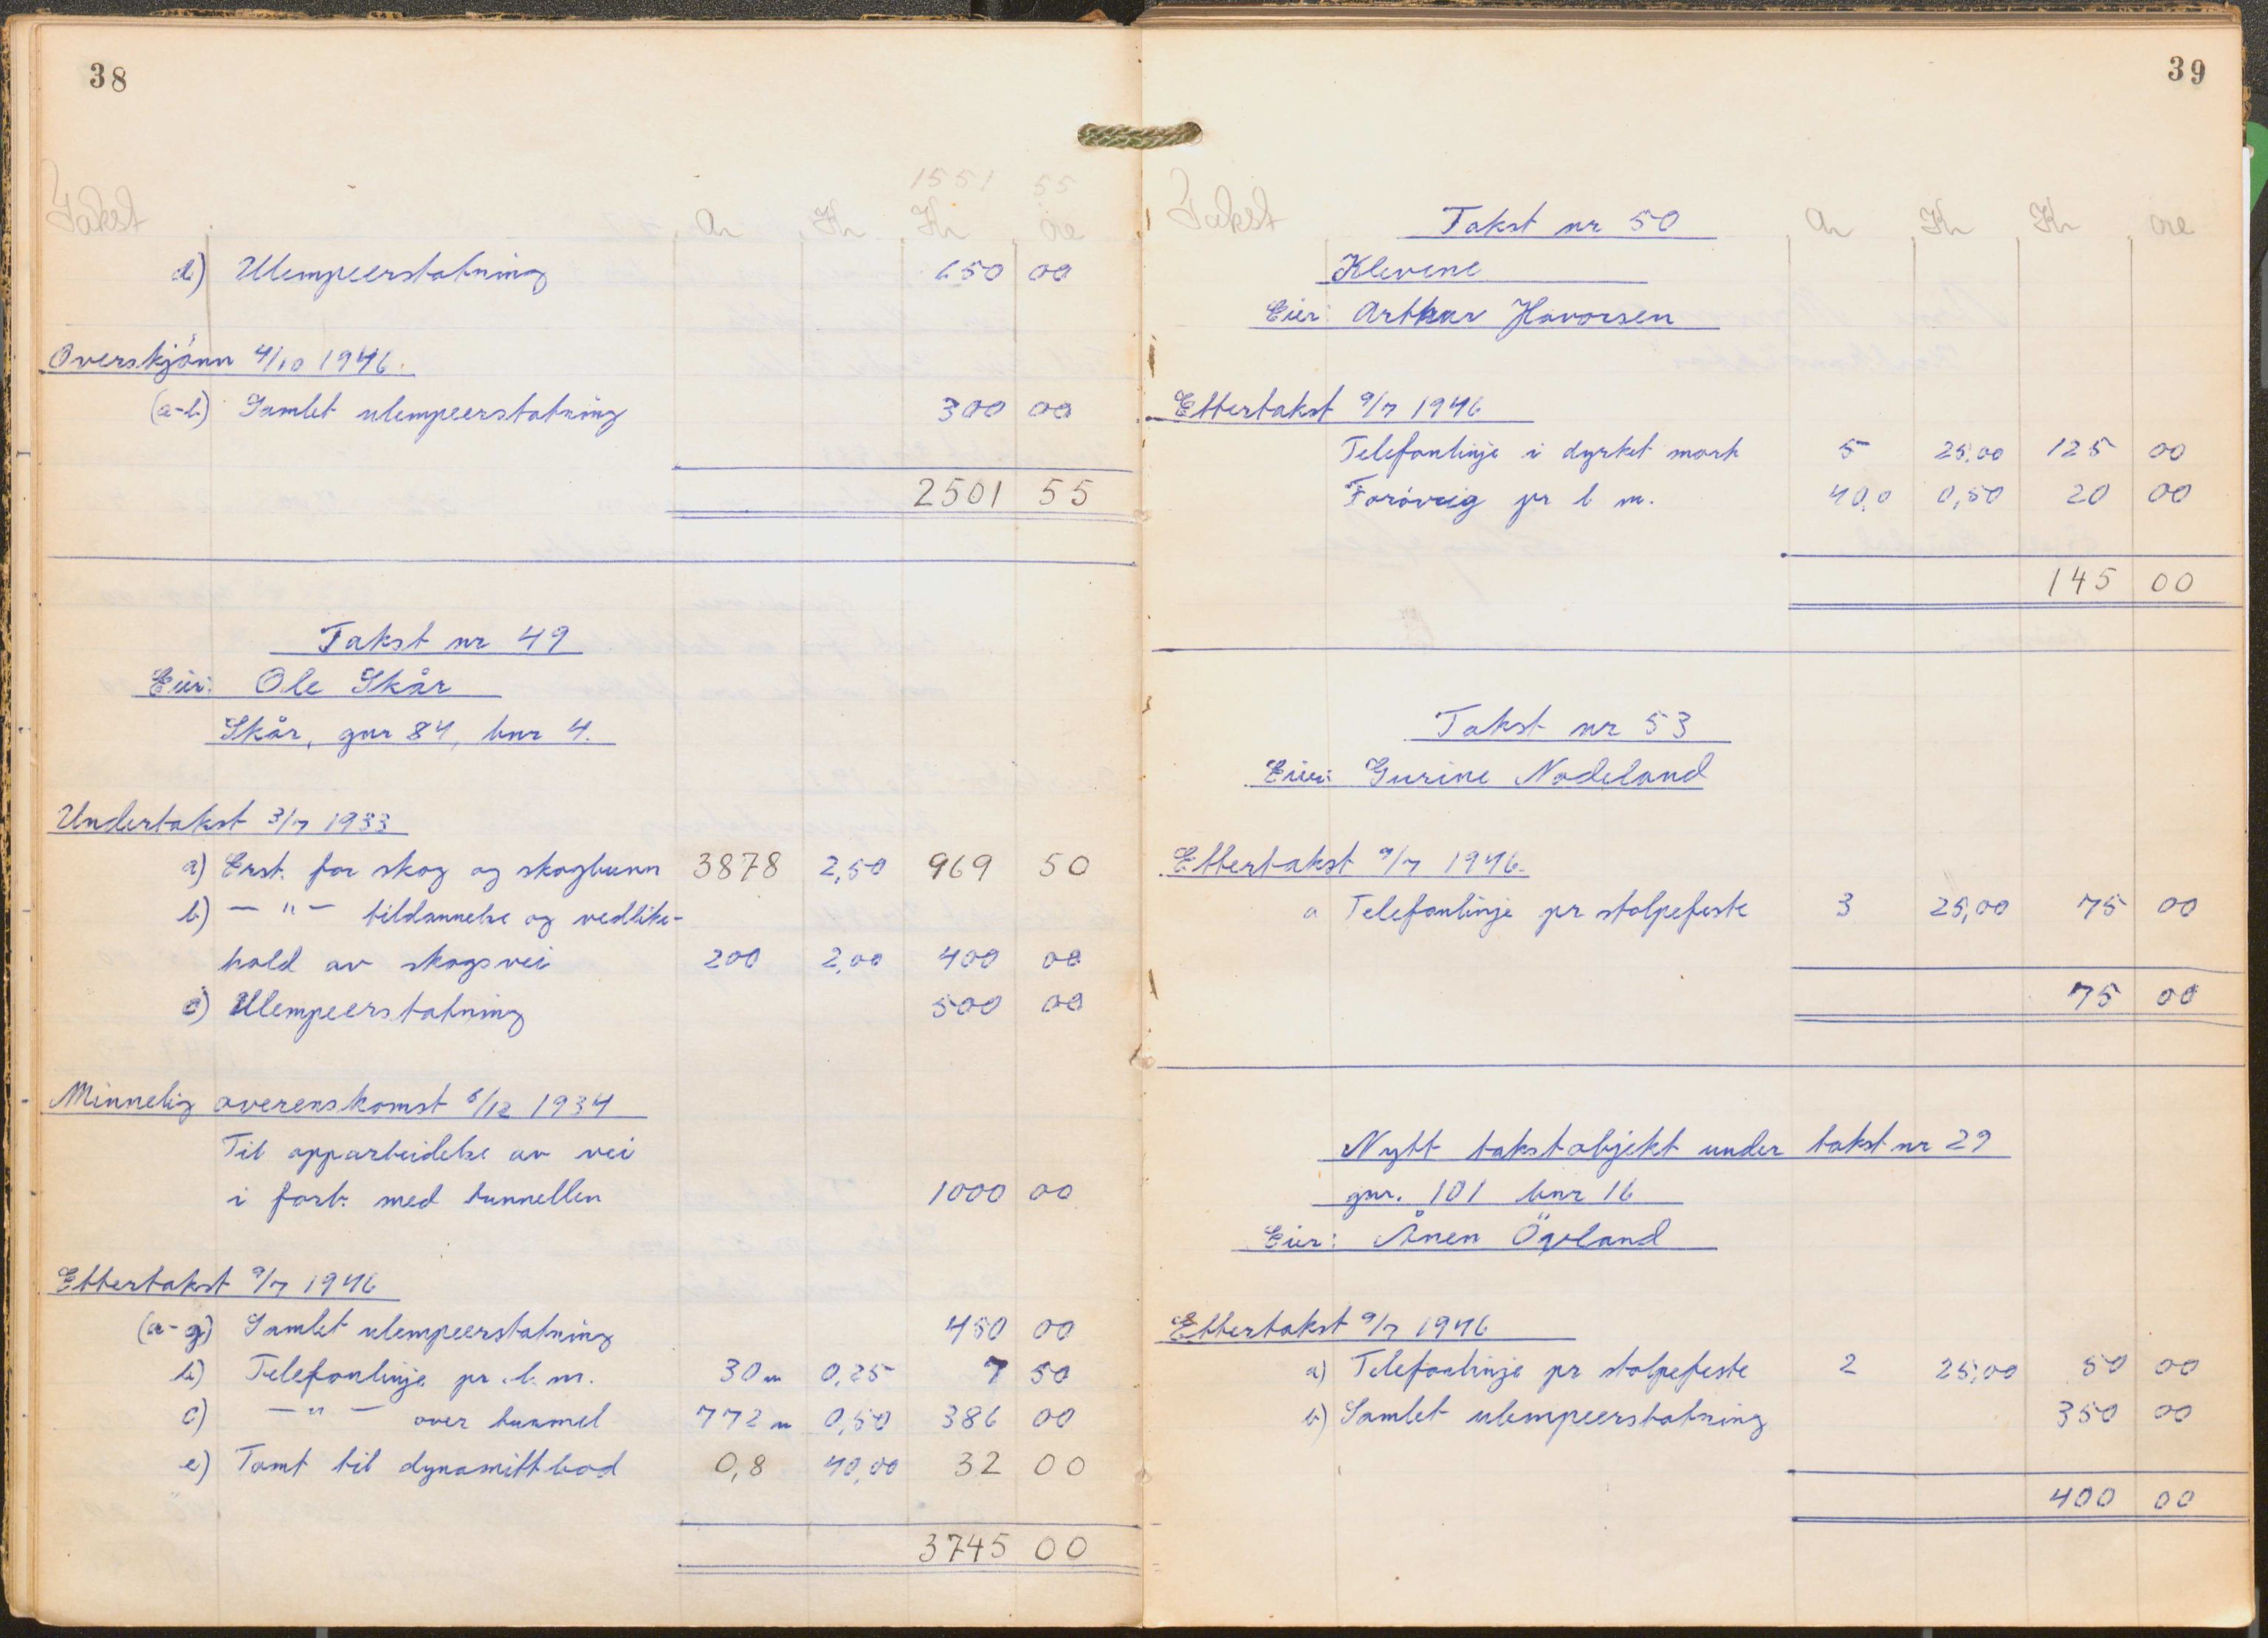 38
1551 55
Takst Ar Kr Kr øre
d) Ulempeerstatning 650 00
Overskjönn 4/10 1946.
(a-b) Samlet ulempeerstatning 300 00
2501 55
Takst nr 49
Eier: Ole Skår
Skår, gnr 84, bnr 4.
Undertakst 3/7 1933
a) Erst. for skog og skogbunn 3878 2,50 969 50
b) — " — tildannelse og vedlike-
hold av skogsvei 200 2,00 400 00
c) Ulempeerstatning 500 00
Minnelig overenskomst 6/12 1934
Til opparbeidelse av vei
i forb. med tunnellen 1000 00
Ettertakst 9/7 1946
(a-g) Samlet ulempeerstatning 450 00
b) Telefonlinje pr. l. m. 30 m 0,25 7 50
c) — " — over tunnel 772 m 0,50 386 00
e) Tomt til dynamittbod 0,8 40,00 32 00
3745 00
39
Takst Ar Kr Kr øre
Takst nr 50
Klevene
Eier: Arthur Havorsen
Ettertakst 9/7 1946
Telefonlinje i dyrket mark 5 25,00 125 00
Forövrig pr l m. 40,0 0,50 20 00
145 00
Takst nr 53
Eier: Gurine Nodeland
Ettertakst 9/7 1946.
a Telefonlinje pr stolpefeste 3 25,00 75 00
75 00
Nytt takstobjekt under takst nr 29
gnr. 101 bnr 16
Eier: Ånen Övland
Ettertakst 9/7 1946
a) Telefonlinje pr stolpefeste 2 25,00 50 00
b) Samlet ulempeerstatning 350 00
400 00